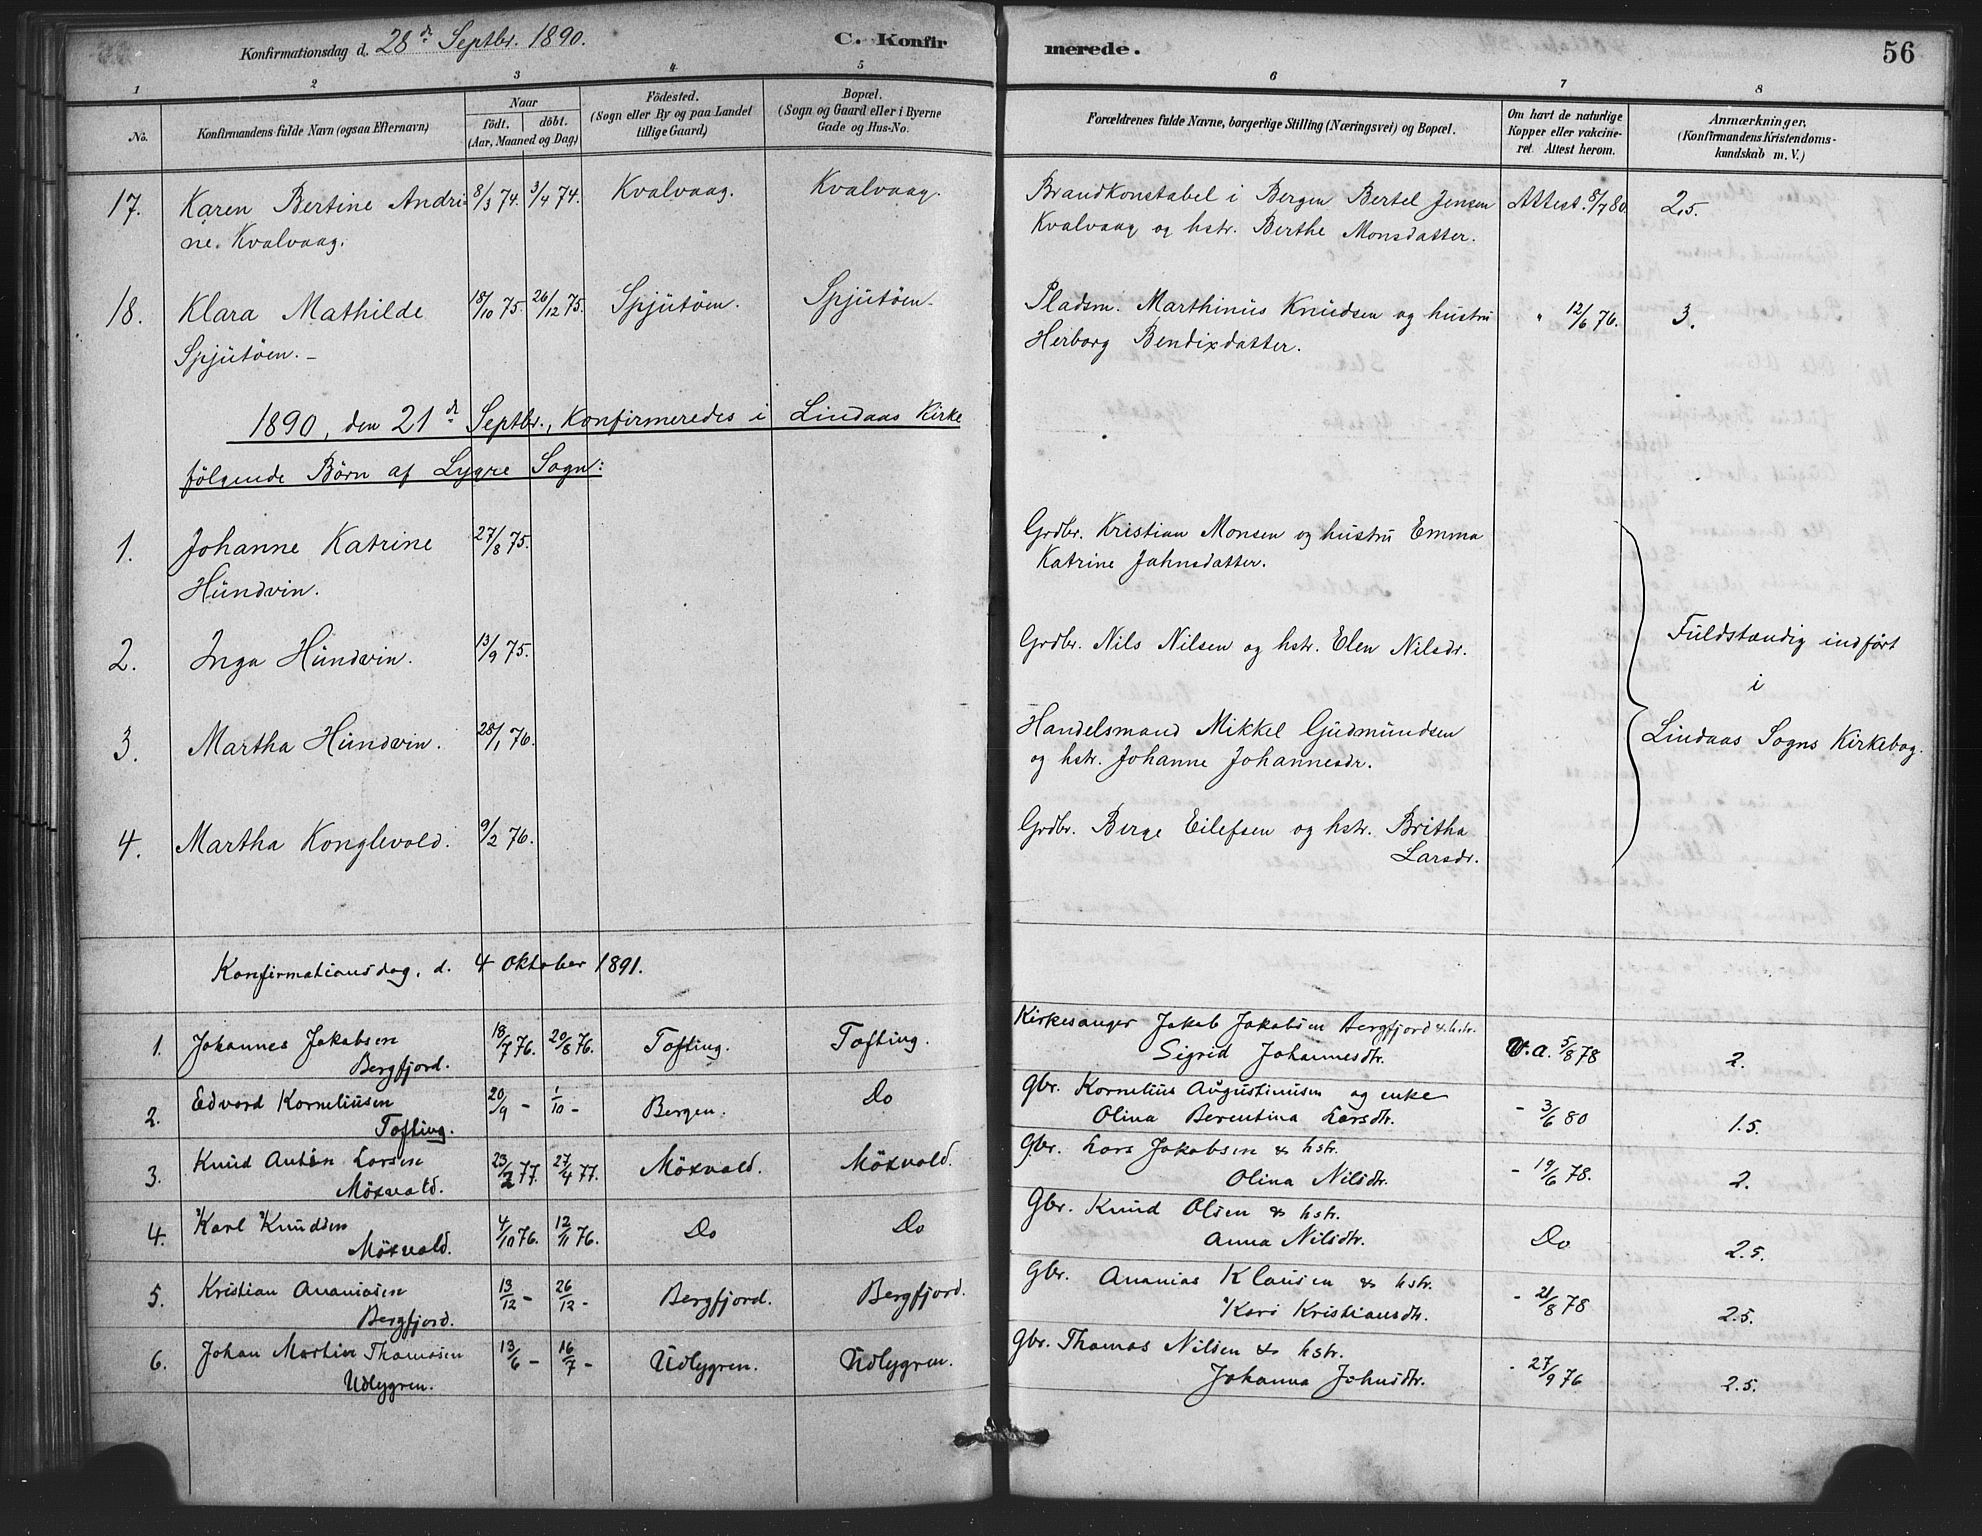 Konfirmationsdag d. 28de Septbr. 1890.
C. Konfirmerede.
56
1 2 3 4 5 6 7 8
No.
Konfirmandens fulde Navn (ogsaa Efternavn)
Naar
födt. döbt.
(Aar, Maaned og Dag)
Födested.
(Sogn eller By og paa Landet
tillige Gaard)
Bopæl.
(Sogn og Gaard eller i Byerne
Gade og Hus-No.
Forældrenes fulde Navne, borgerlige Stilling (Næringsvei) og Bopæl.
Om havt de naturlige
Kopper eller vakcine-
ret. Attest herom.
Anmærkninger,
(Konfirmandens Kristendoms-
kundskab m. V.)
17. Karen Bertine Andri- 8/3 74. 3/4 74. Kvalvaag. Kvalvaag. Brandkonstabel i Bergen Bertel Jensen Attest. 8/7 80. 2.5.
ne. Kvalvaag. Kvalvaag og hstr. Berthe Monsdatter.
18. Klara Mathilde 18/10 75. 26/12 75. Spjutöen. Spjutöen. Pladsm. Marthinus Knudsen og hustru " 12/6 76. 3.
Spjutöen. Herborg Bendixdatter.
1890, den 21de Septbr., Konfirmeredes i Lindaas Kirke
fölgende Börn af Lygre Sogn:
1. Johanne Katrine 27/8 75. Grdbr. Kristian Monsen og hustru Emma
Hundvin. Katrine Jahnsdatter.
2. Inga Hundvin. 13/9 75. Grdbr. Nils Nilsen og hstr. Elen Nilsdr.
Fuldstændig indført
i
Lindaas Sogns Kirkebog.
3. Martha Hundvin. 28/1 76. Handelsmand Mikkel Gjudmundsen
og hstr. Johanne Johannesdr.
4. Martha Konglevold. 9/2 76. Grdbr. Berge Eilefsen og hstr. Britha
Larsdr.
Konfirmationsdag. d. 4 Oktober 1891.
1. Johannes Jakobsen 18/7 76. 20/8 76. Tofting. Tofting. Kirkesanger Jakob Jakobsen Bergfjord & hstr. V.a. 5/8 78 2.
Bergfjord. Sigrid Johannesdtr.
2. Edvard Korneliusen 20/9 - 1/10 - Bergen. Do Gbr. Kornelius Augustinusen og enke - 3/6 80 1.5.
Tofting. Olina Berentina Larsdtr.
3. Knud Anton Larsen 23/2 77. 27/4 77. Möxvold. Möxvold. Gbr. Lars Jakobsen & hstr. - 19/6 78. 2.
Möxvold. Olina Nilsdtr.
4. Karl Knudsen 4/10 76. 12/11 76. Do Do Gbr. Knud Olsen & hstr. Do 2.5.
Möxvold. Anna Nilsdtr.
5. Kristian Ananiasen 13/12 - 26/12 - Bergfjord. Bergfjord. Gbr. Ananias Klausen & hstr. - 21/8 78 2.5.
Bergfjord. Kari Kristiansdtr.
6. Johan Martin Thomasen 13/6 - 16/7 - Udlygren. Udlygren. Gbr. Thomas Nilsen & hstr. - 27/9 76 2.5.
Udlygren. Johanna Johnsdtr.